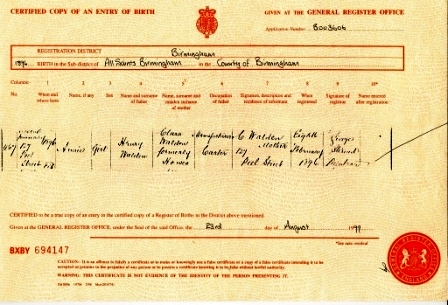 CERTIFIED COPY OF AN ENTRY OF BIRTH
GIVEN AT THE GENERAL REGISTER OFFICE
Application Number B003606
REGISTRATION DISTRICT Birmingham
1896 BIRTH in the Sub-district of All Saints Birmingham in the County of Birmingham
Columns:- 1 2 3 4 5 6 7 8 9 10*
No. When and where born Name, if any Sex Name and surname of father Name, surname and maiden surname of mother Occupation of father Signature, description and residence of informant When registered Signature of registrar Name entered after registration
467 1896 127 Peel Street Annie Girl Henry Waldon Clara Waldon formerly Carter C Waldon Mother 127 Peel Street Eighth February 1896 George
CERTIFIED to be a true copy of an entry in the certified copy of a Register of Births in the District above mentioned.
Given at the GENERAL REGISTER OFFICE, under the Seal of the said Office, the 23rd day of August 1999
*See note overleaf
BXBY 694147
CAUTION: It is an offence to falsify a certificate or to make or knowingly use a false certificate or a copy of a false certificate intending it to be accepted as genuine to the prejudice of any person or to possess a certificate knowing it to be false without lawful authority.
WARNING: THIS CERTIFICATE IS NOT EVIDENCE OF THE IDENTITY OF THE PERSON PRESENTING IT.